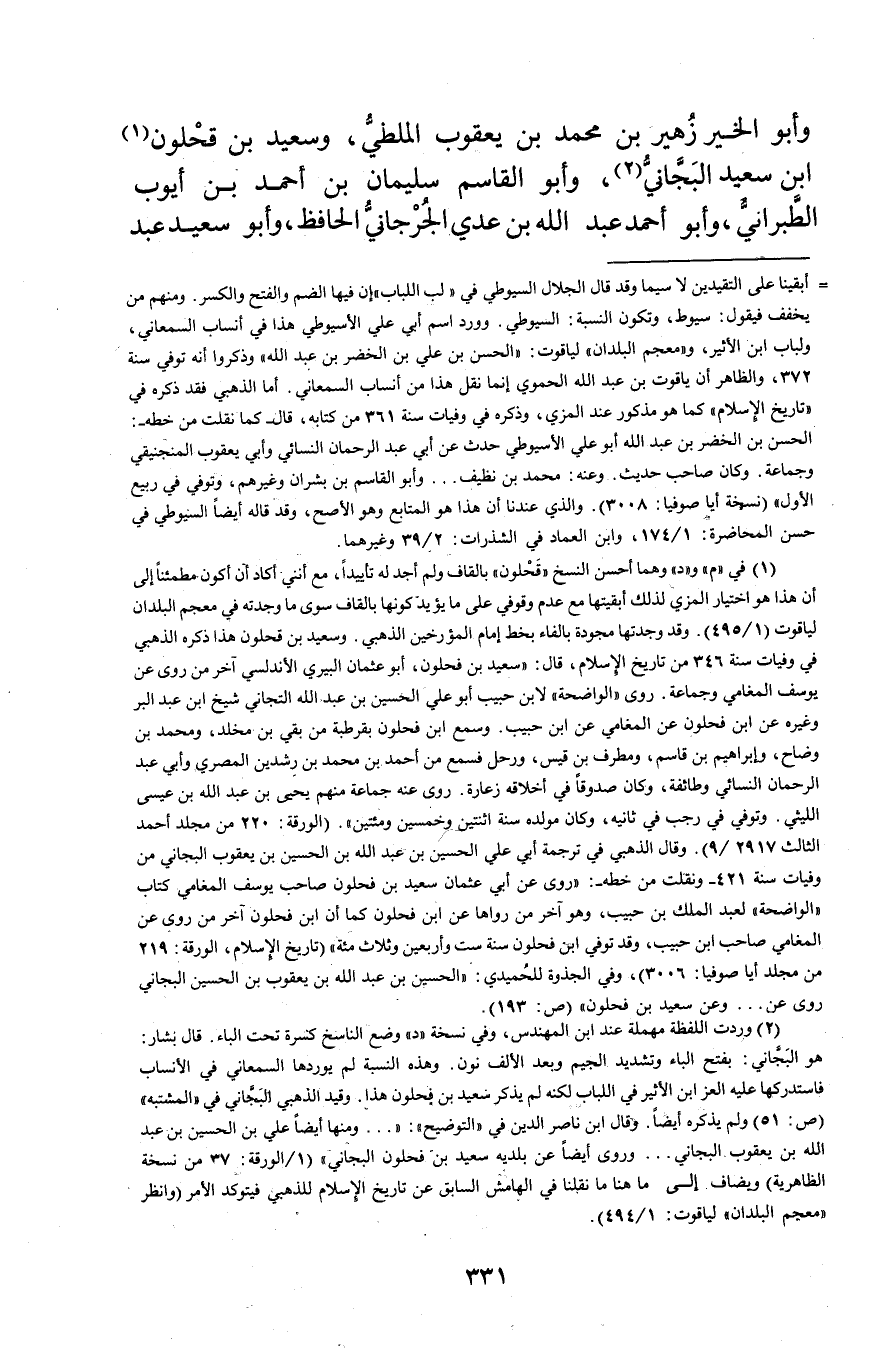 وأبو الخير زُهير بن محمد بن يعقوب الملطيُّ، وسعيد بن قحْلون(١)
ابن سعيد البَجَّانيُّ(٢)، وأبو القاسم سليمان بن أحمد بن أيوب
الطَّبرانيُّ، وأبو أحمد عبد الله بن عدي الجُرْجانيُّ الحافظ، وأبو سعيد عبد
= أبقينا على التقيدين لا سيما وقد قال الجلال السيوطي في « لب اللباب» إن فيها الضم والفتح والكسر. ومنهم من
يخفف فيقول: سيوط، وتكون النسبة: السيوطي. وورد اسم أبي علي الأسيوطي هذا في أنساب السمعاني،
ولباب ابن الأثير، و«معجم البلدان» لياقوت: «الحسن بن علي بن الخضر بن عبد الله» وذكروا أنه توفي سنة
٣٧٢، والظاهر أن ياقوت بن عبد الله الحموي إنما نقل هذا من أنساب السمعاني. أما الذهبي فقد ذكره في
«تاريخ الإسلام» كما هو مذكور عند المزي، وذكره في وفيات سنة ٣٦١ من كتابه، قال ـ كما نقلت من خطه ـ:
الحسن بن الخضر بن عبد الله أبو علي الأسيوطي حدث عن أبي عبد الرحمان النسائي وأبي يعقوب المنجنيقي
وجماعة. وكان صاحب حديث. وعنه: محمد بن نظيف... وأبو القاسم بن بشران وغيرهم، وتوفي في ربيع
الأول» (نسخة أيا صوفيا: ٣٠٠٨). والذي عندنا أن هذا هو المتابع وهو الأصح، وقد قاله أيضاً السيوطي في
حسن المحاضرة: ١٧٤/١، وابن العماد في الشذرات: ٣٩/٢ وغيرهما.
(١) في «م» و«د» وهما أحسن النسخ «قَحْلون» بالقاف ولم أجد له تأييداً، مع أنني أكاد أن أكون مطمئناً إلى
أن هذا هو اختيار المزي لذلك أبقيتها مع عدم وقوفي على ما يؤيد كونها بالقاف سوى ما وجدته في معجم البلدان
لياقوت (٤٩٥/١). وقد وجدتها مجودة بالفاء بخط إمام المؤرخين الذهبي. وسعيد بن قحلون هذا ذكره الذهبي
في وفيات سنة ٣٤٦ من تاريخ الإسلام، قال: «سعيد بن فحلون، أبو عثمان البيري الأندلسي آخر من روى عن
يوسف المغامي وجماعة. روى «الواضحة» لابن حبيب أبو علي الحسين بن عبد الله التجاني شيخ ابن عبد البر
وغيره عن ابن فحلون عن المغامي عن ابن حبيب. وسمع ابن فحلون بقرطبة من بقي بن مخلد، ومحمد بن
وضاح، وإبراهيم بن قاسم، ومطرف بن قيس، ورحل فسمع من أحمد بن محمد بن رشدين المصري وأبي عبد
الرحمان النسائي وطائفة، وكان صدوقاً في أخلاقه زعارة. روى عنه جماعة منهم يحيى بن عبد الله بن عيسى
الليثي. وتوفي في رجب في ثانيه، وكان مولده سنة اثنتين وخمسين ومئتين». (الورقة: ٢٢٠ من مجلد أحمد
الثالث ٢٩١٧ /٩). وقال الذهبي في ترجمة أبي علي الحسين بن عبد الله بن الحسين بن يعقوب البجاني من
وفيات سنة ٤٢١ ـ ونقلت من خطه ـ: «روى عن أبي عثمان سعيد بن فحلون صاحب يوسف المغامي كتاب
«الواضحة» لعبد الملك بن حبيب، وهو آخر من رواها عن ابن فحلون كما أن ابن فحلون آخر من روى عن
المغامي صاحب ابن حبيب، وقد توفي ابن فحلون سنة ست وأربعين وثلاث مئة» (تاريخ الإسلام، الورقة: ٢١٩
من مجلد أيا صوفيا: ٣٠٠٦)، وفي الجذوة للحُميدي: «الحسين بن عبد الله بن يعقوب بن الحسين البجاني
روى عن... وعن سعيد بن فحلون» (ص: ١٩٣).
(٢) وردت اللفظة مهملة عند ابن المهندس، وفي نسخة «د» وضع الناسخ كسرة تحت الباء. قال بشار:
هو البَجَّاني: بفتح الباء وتشديد الجيم وبعد الألف نون. وهذه النسبة لم يوردها السمعاني في الأنساب
فاستدركها عليه العز ابن الأثير في اللباب لكنه لم يذكر سعيد بن فحلون هذا. وقيد الذهبي البَجَّاني في «المشتبه»
(ص: ٥١) ولم يذكره أيضاً. وقال ابن ناصر الدين في «التوضيح»: «... ومنها أيضاً علي بن الحسين بن عبد
الله بن يعقوب البجاني... وروى أيضاً عن بلديه سعيد بن فحلون البجاني» (١/الورقة: ٣٧ من نسخة
الظاهرية) ويضاف إلى ما هنا ما نقلنا في الهامش السابق عن تاريخ الإسلام للذهبي فيتوكد الأمر (وانظر
«معجم البلدان» لياقوت: ٤٩٤/١).
٣٣١